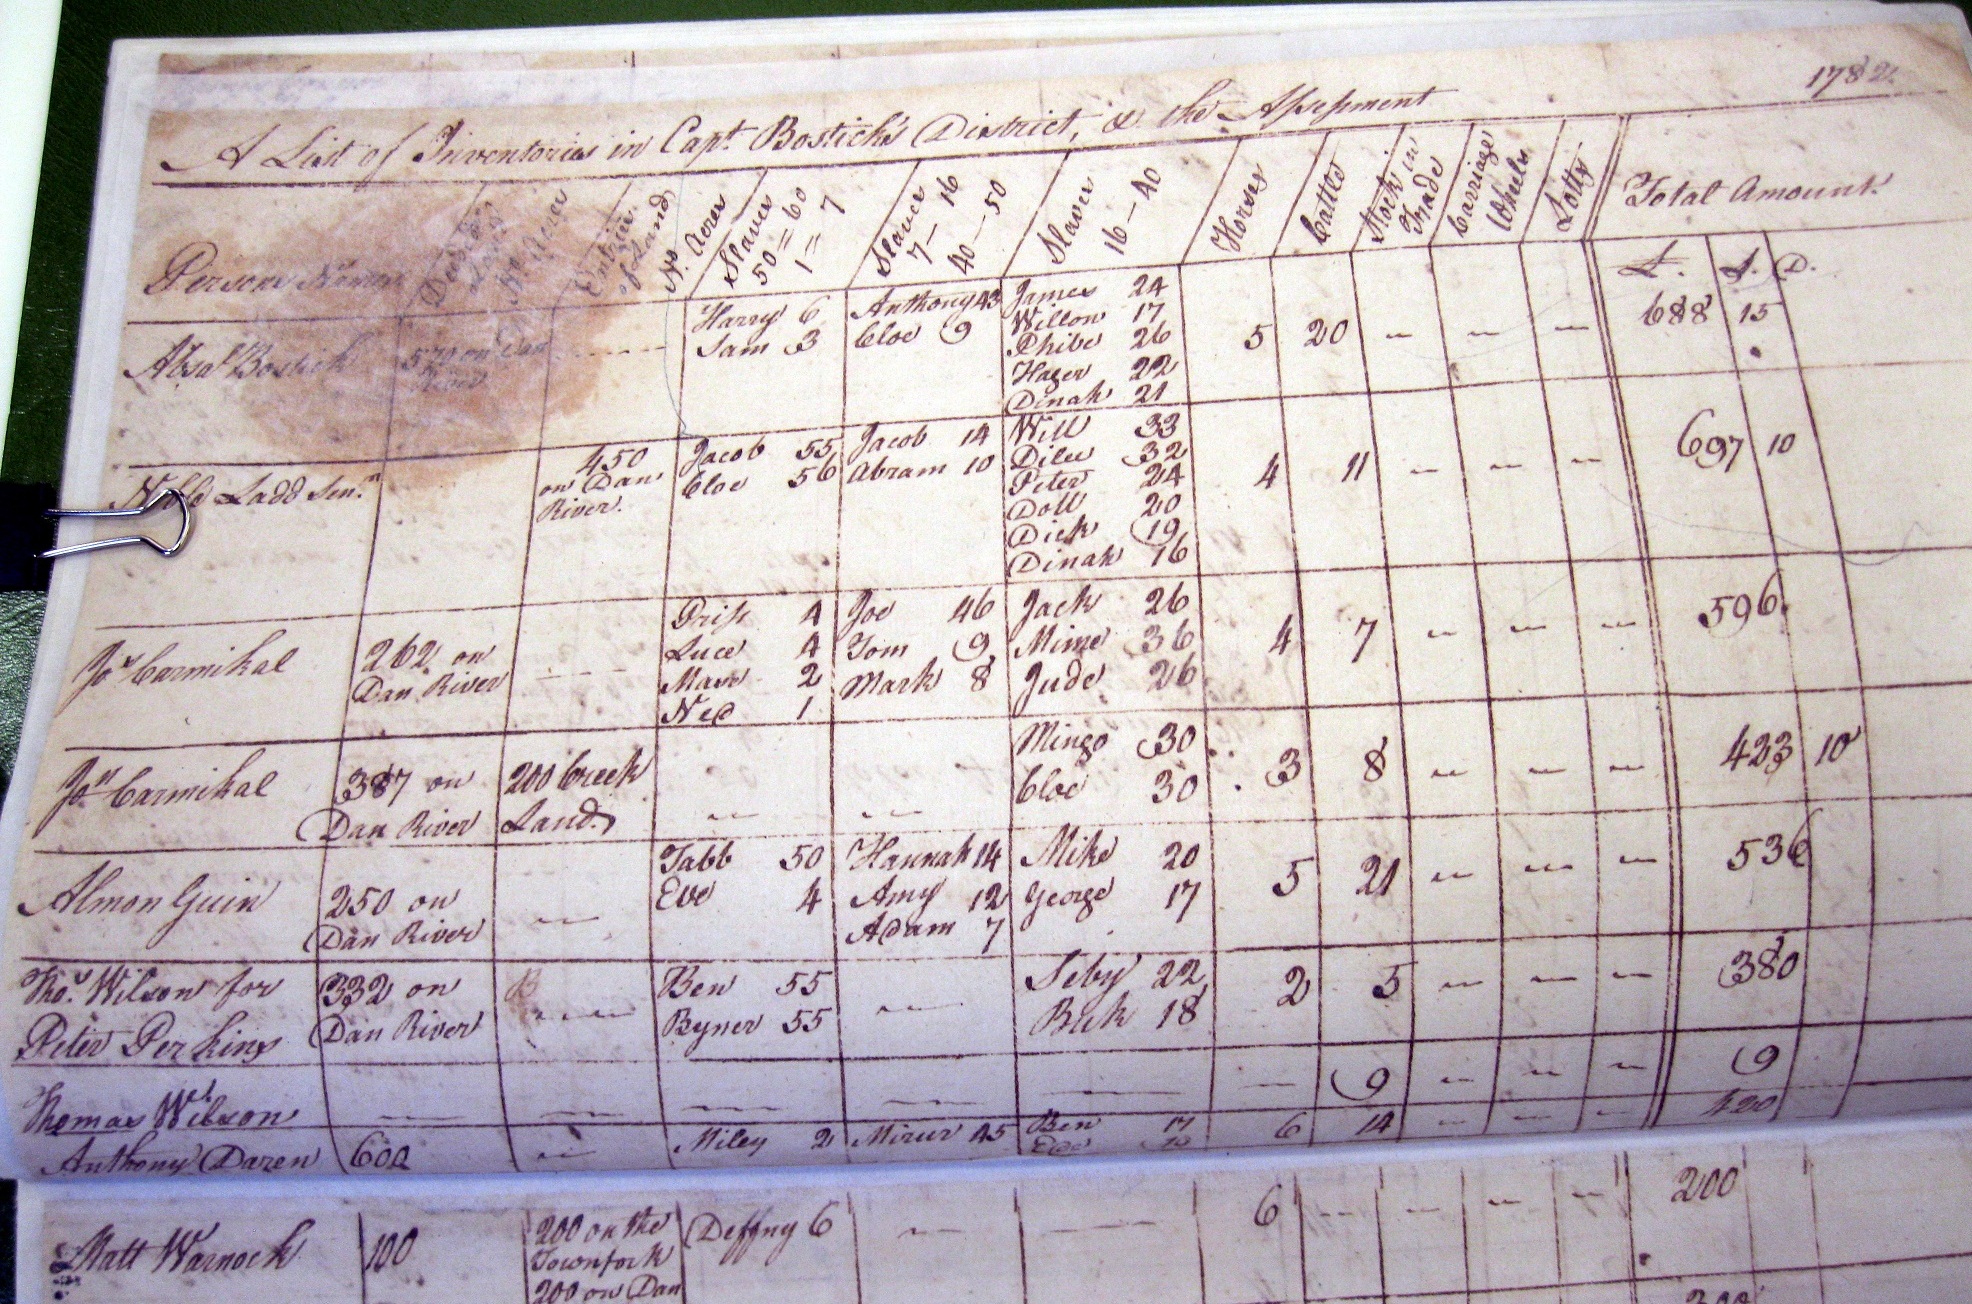 1782
A List of Inventories in Capt Bostick's District, & the Assessment
Persons Names
Deeded Land No Acres
Entries of Land
No. Acres
Slaves 50 = 60 1 = 7
Slaves 7 — 16 40 — 50
Slaves 16 — 40
Horses
Cattle
Stock in Trade
Carriage Wheels
Lotts
Total Amount
£. S. D.
Absal Bostick 570 on Dan River
Harry 6 Anthony 43 James 24 5 20 688 15
Sam 3 Cloe 9 Willon 17
Phibe 26
Hager 22
Dinah 21
Noble Ladd Senr. 450 on Dan River. Jacob 55 Jacob 14 Will 33 4 11 697 10
Cloe 56 Abram 10 Dilce 32
Peter 24
Doll 20
Dick 19
Dinah 16
Jos Carmikal 262 on Dan River Priss 4 Joe 46 Jack 26 4 7 596
Luce 4 Tom 9 Mime 36
2 Mark 8 Jude 26
Ned 1
Jon Carmikal 387 on Dan River 200 Creek Land Mingo 30 3 8 423 10
Cloe 30
Almon Guin 250 on Dan River Tabb 50 Hannah 14 Mike 20 5 21 536
Eve 4 Amy 12 George 17
Adam 7
Thos. Wilson for 332 on B Ben 55 Seby 22 2 5 380
Peter Perkins Dan River Byner 55 Buk 18
Thomas Wilson 9 9
Anthony Daren 600 Miley 2 45 Ben 17 6 14 420
Matt Warnock 100 200 on the Townfork Deffny 6 6 200
200 on Dan 200